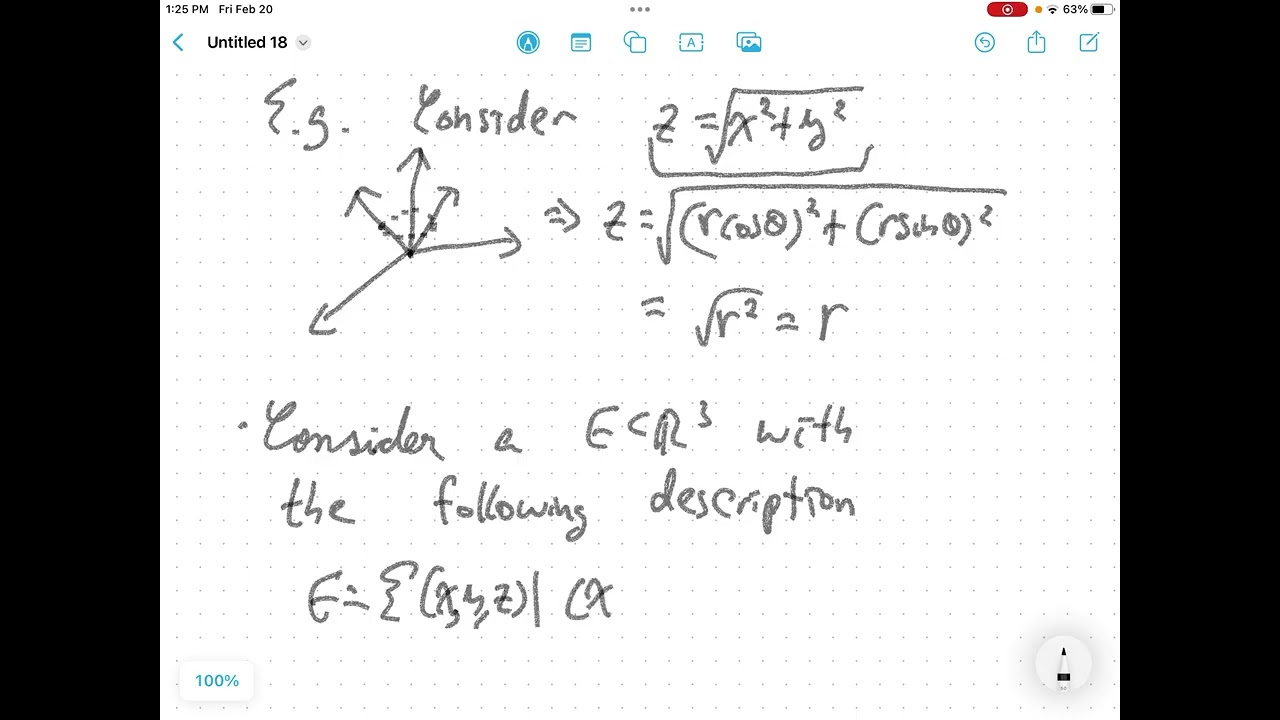 1:25 PM Fri Feb 20
63%
Untitled 18
E.g. Consider z = √(x² + y²)
⇒ z = √((rcosθ)² + (rsinθ)²)
= √(r²) = r
• Consider a E ⊂ ℝ³ with
the following description
E = {(x,y,z) | (x
100%